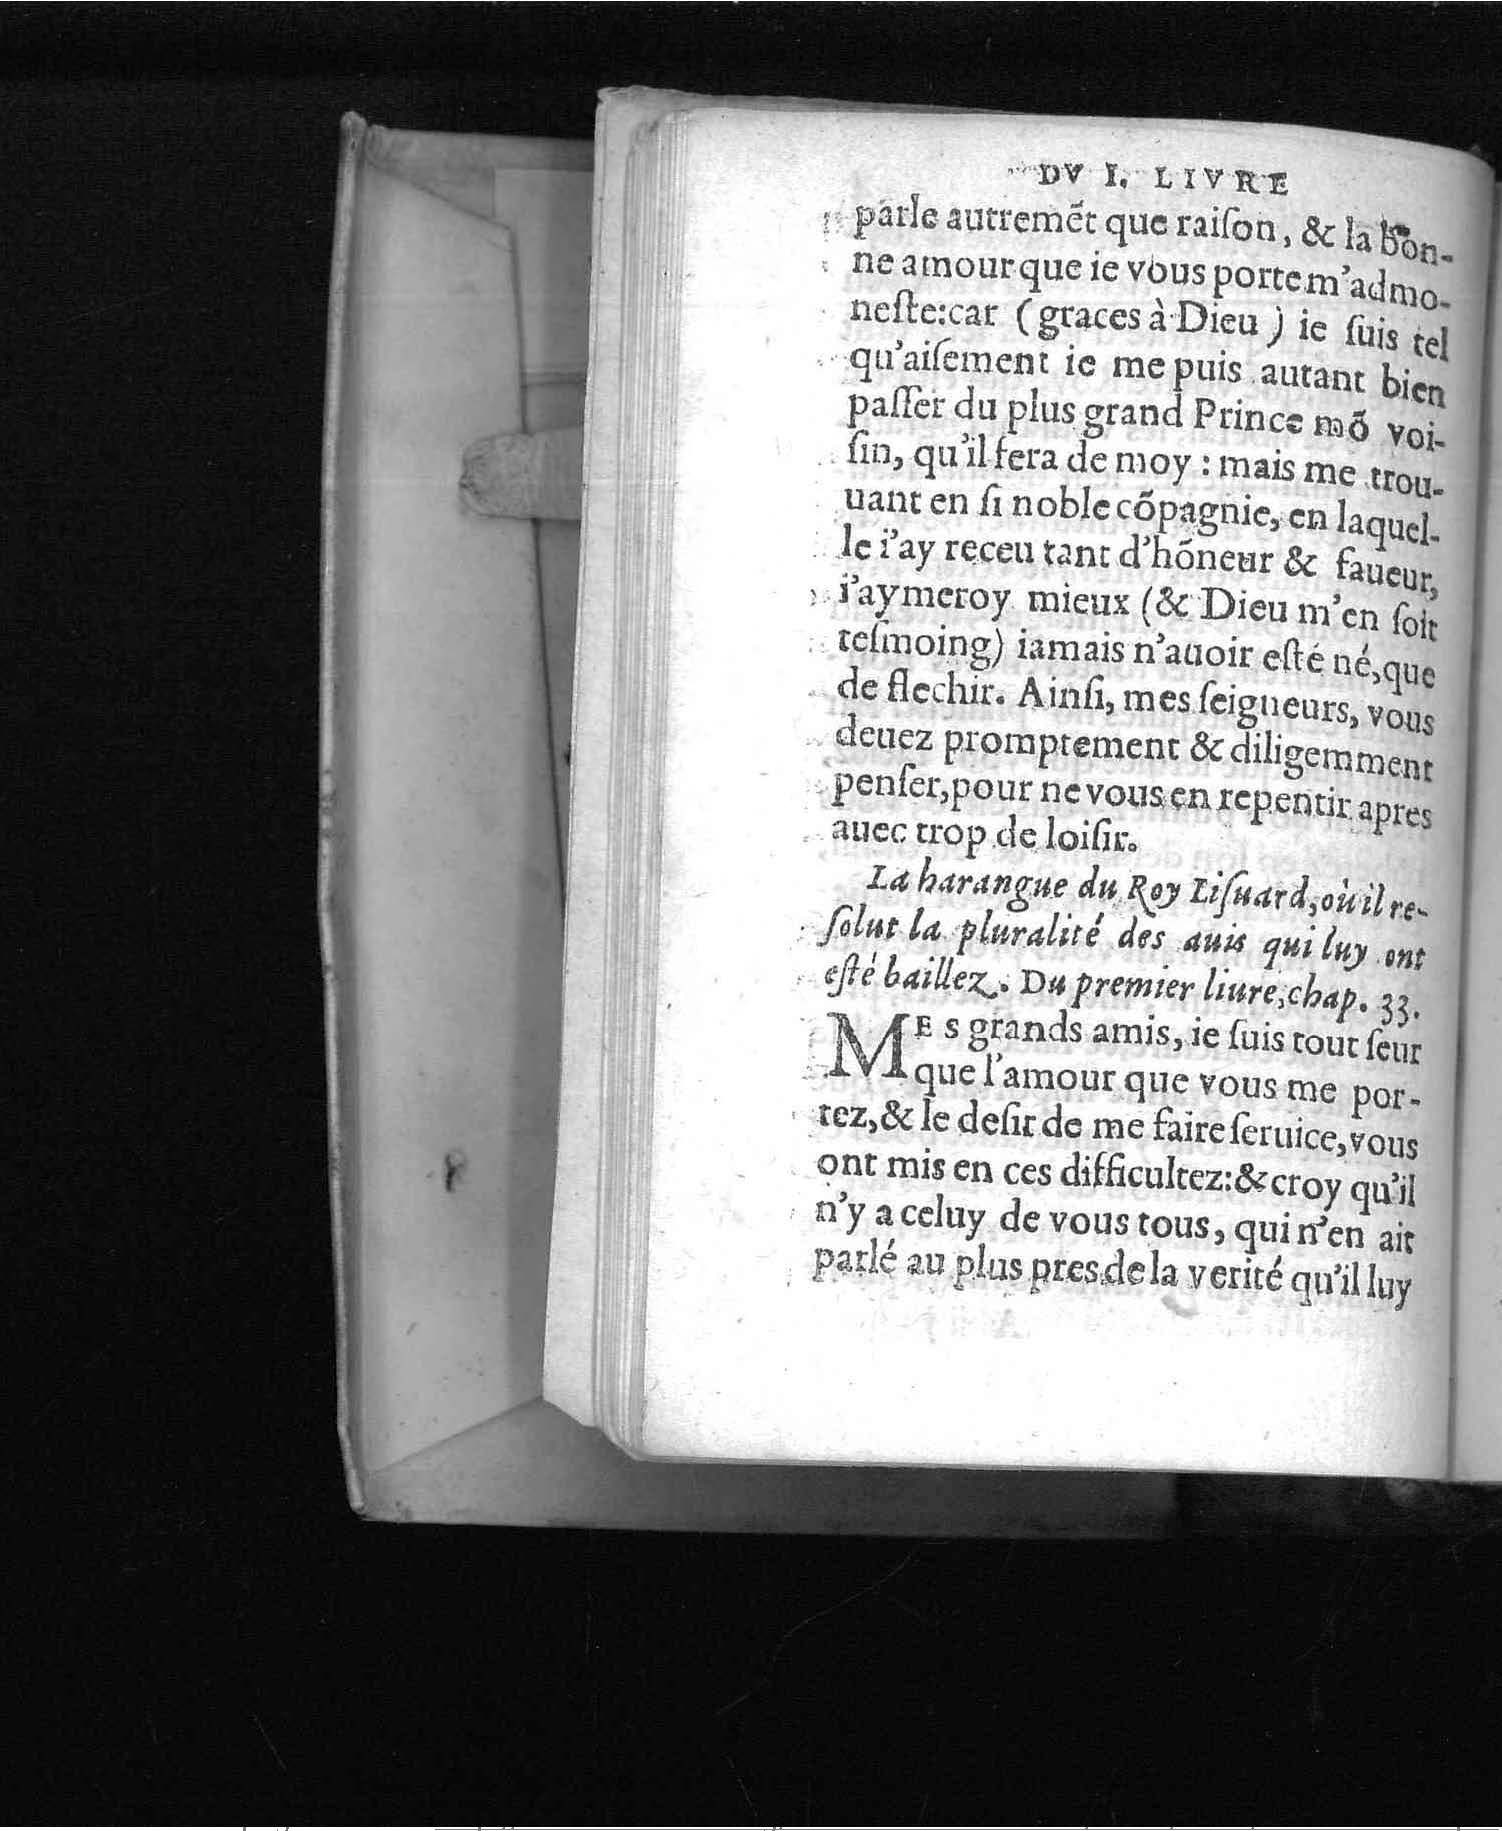 DV I. LIVRE
parle autremẽt que raiſon, & la bon-
ne amour que ie vous porte m'admo-
neſte:car (graces à Dieu) ie ſuis tel
qu'aiſement ie me puis autant bien
paſſer du plus grand Prince mõ voi-
ſin, qu'il fera de moy : mais me trou-
uant en ſi noble cõpagnie, en laquel-
le i'ay receu tant d'hõneur & faueur,
i'aymeroy mieux (& Dieu m'en ſoit
teſmoing) iamais n'auoir eſté né,que
de flechir. Ainſi, mes ſeigneurs, vous
deuez promptement & diligemment
penſer,pour ne vous en repentir apres
auec trop de loiſir.
La harangue du Roy Liſuard, où il re-
ſolut la pluralité des auis qui luy ont
eſté baillez. Du premier liure, chap. 33.
MEs grands amis, ie ſuis tout ſeur
que l'amour que vous me por-
tez,& le deſir de me faire ſeruice,vous
ont mis en ces difficultez:& croy qu'il
n'y a celuy de vous tous, qui n'en ait
parlé au plus pres de la verité qu'il luy